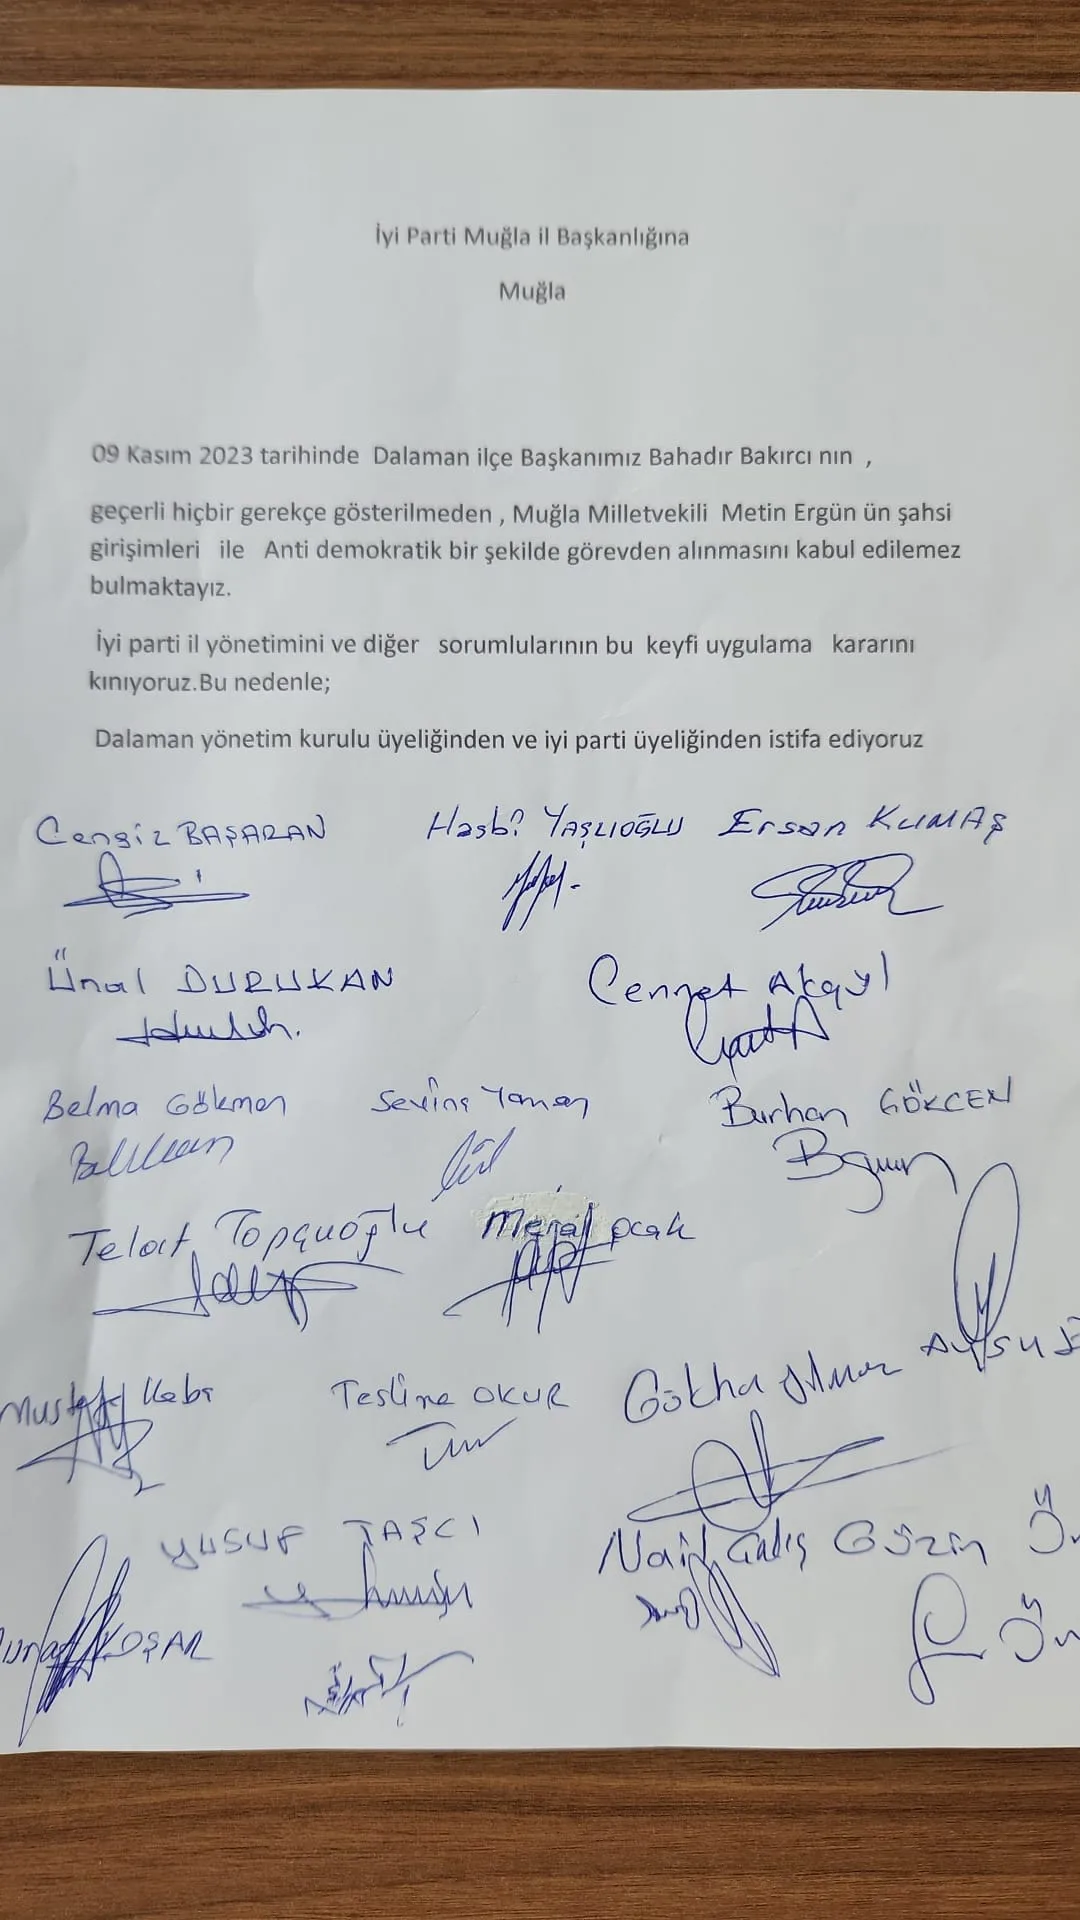 İyi Parti Muğla il Başkanlığına
Muğla
09 Kasım 2023 tarihinde Dalaman ilçe Başkanımız Bahadır Bakırcı nın ,
geçerli hiçbir gerekçe gösterilmeden , Muğla Milletvekili Metin Ergün ün şahsi
girişimleri ile Anti demokratik bir şekilde görevden alınmasını kabul edilemez
bulmaktayız.
İyi parti il yönetimini ve diğer sorumlularının bu keyfi uygulama kararını
kınıyoruz.Bu nedenle;
Dalaman yönetim kurulu üyeliğinden ve iyi parti üyeliğinden istifa ediyoruz
Cengiz BAŞARAN Hasbi YAŞLIOĞLU Ersan KUMAŞ
Ünal DURUKAN Cennet Akgül
Belma Gökmen Sevinç Yaman Burhan GÖKCEN
Telat Topçuoğlu Meral ocak
Mustafa Teslime OKUR Gökha
YUSUF TAŞCI Nail Güzin
KOŞAR